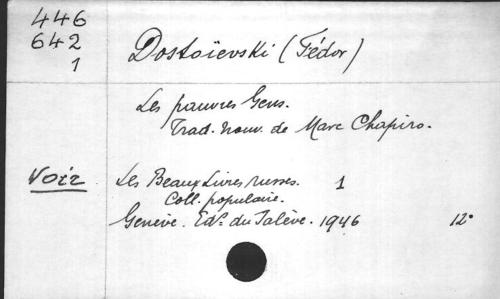 446
642
1
Dostoïevski (Fédor)
Les pauvres Gens.
Trad. nouv. de Marc Chapiro.
Voir
Les Beaux Livres russes. 1
Coll. populaire.
Genève. Edns du Salève. 1946 12°